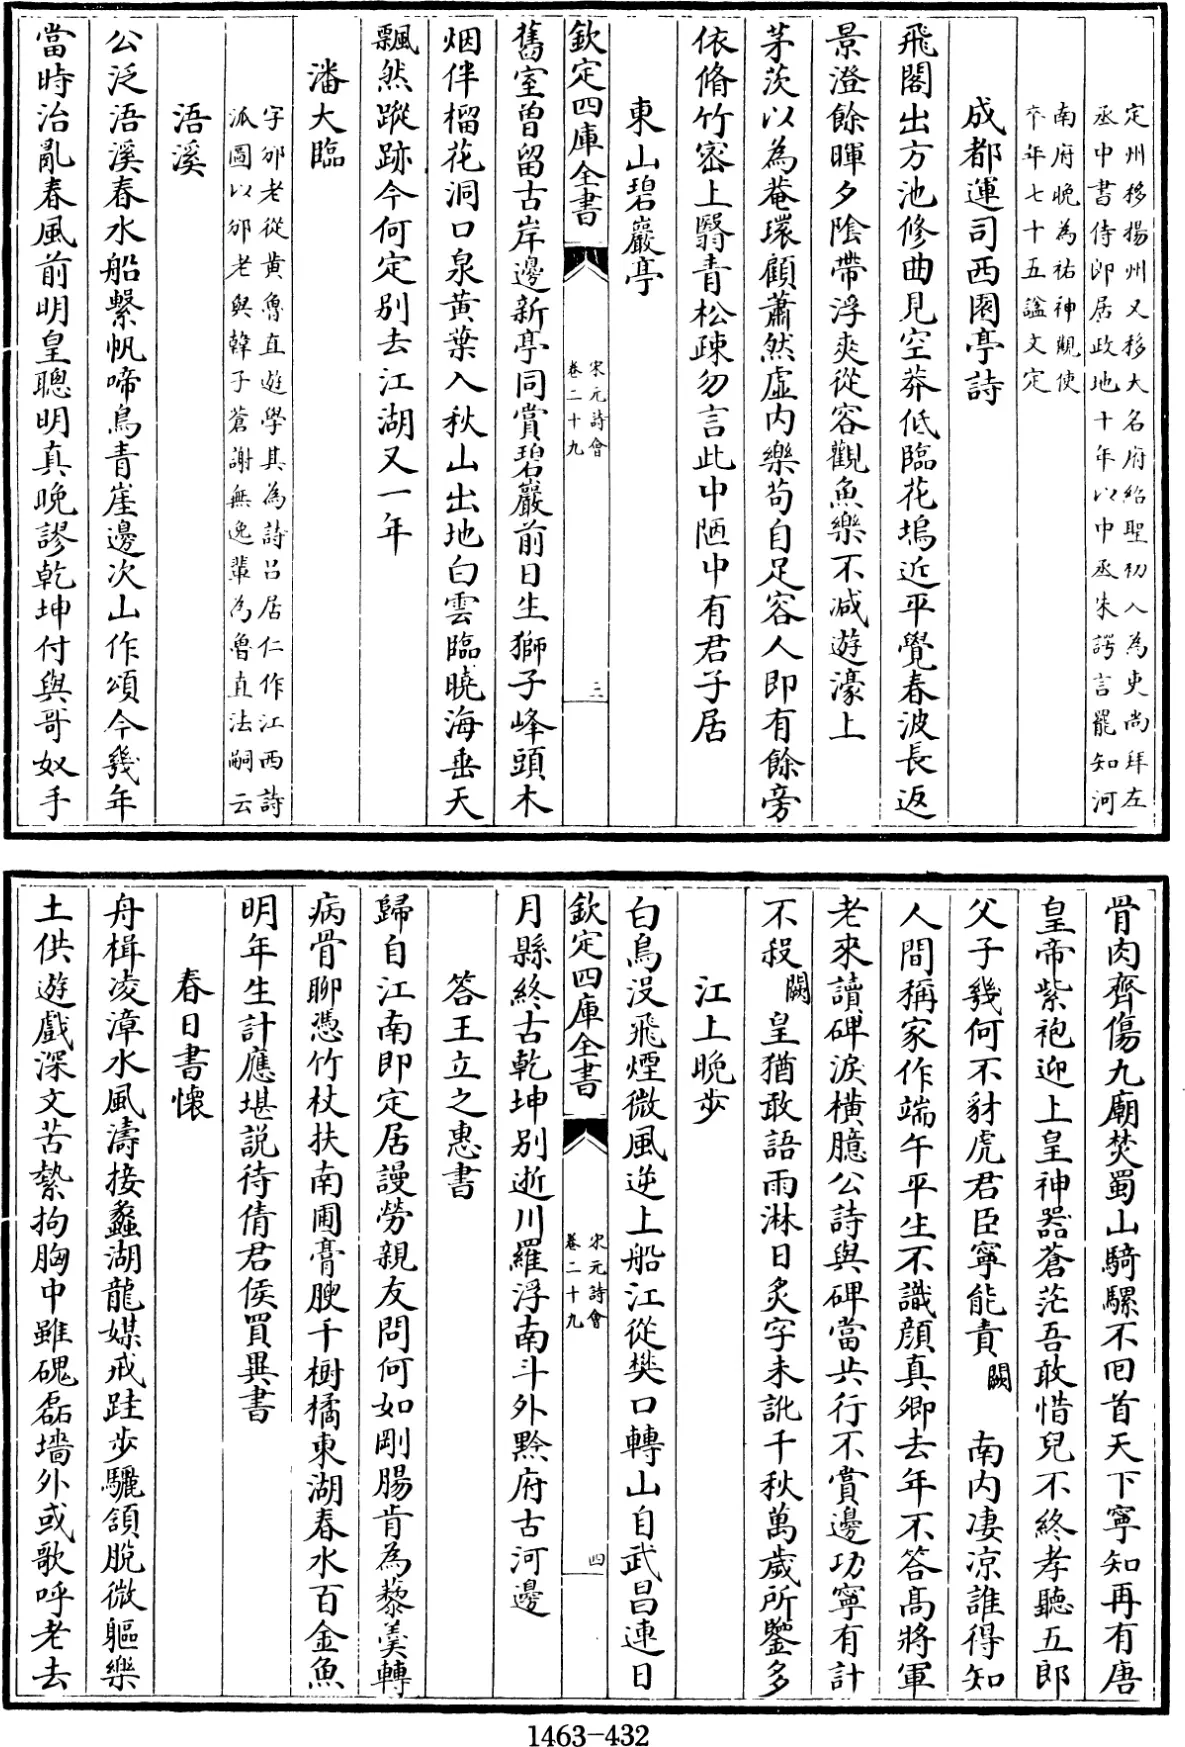 定州移揚州又移大名府紹聖初入為吏尚拜左
丞中書侍郎居政地十年以中丞朱諤言罷知河
南府晚為祐神觀使
卒年七十五諡文定
成都運司西園亭詩
飛閣出方池修曲見空莽低臨花塢近平覺春波長返
景澄餘暉夕陰帶浮爽從容觀魚樂不減遊濠上
茅茨以為菴環顧蕭然虛内樂苟自足容人即有餘旁
依脩竹密上翳青松疎勿言此中陋中有君子居
東山碧巖亭
欽定四庫全書
宋元詩會
卷二十九
三
舊室曾留古岸邊新亭同賞碧巖前日生獅子峰頭木
烟伴榴花洞口泉黄葉入秋山出地白雲臨曉海垂天
飄然蹤跡今何定别去江湖又一年
潘大臨
字邠老從黄魯直遊學其為詩吕居仁作江西詩
派圖以邠老與韓子蒼謝無逸輩為魯直法嗣云
浯溪
公泛浯溪春水船繫帆啼鳥青崖邊次山作頌今幾年
當時治亂春風前明皇聰明真晚謬乾坤付與哥奴手
骨肉齊傷九廟焚蜀山騎騾不回首天下寧知再有唐
皇帝紫袍迎上皇神器蒼茫吾敢惜兒不終孝聽五郎
父子幾何不豺虎君臣寧能責闕南内凄凉誰得知
人間稱家作端午平生不識顔真卿去年不答高將軍
老來讀碑淚横臆公詩與碑當共行不賞邊功寧有計
不殺闕皇猶敢語雨淋日炙字未訛千秋萬歲所鑒多
江上晚步
白鳥没飛煙微風逆上船江從樊口轉山自武昌連日
欽定四庫全書
宋元詩會
卷二十九
四
月縣終古乾坤别逝川羅浮南斗外黔府古河邊
答王立之惠書
歸自江南即定居謾勞親友問何如剛腸肯為藜羮轉
病骨聊憑竹杖扶南圃膏腴千樹橘東湖春水百金魚
明年生計應堪説待倩君侯買異書
春日書懷
舟楫凌漳水風濤接蠡湖龍媒戒跬步驪頷脱微軀樂
土供遊戲深文苦縶拘胸中雖磈磊墻外或歌呼老去
1463-432